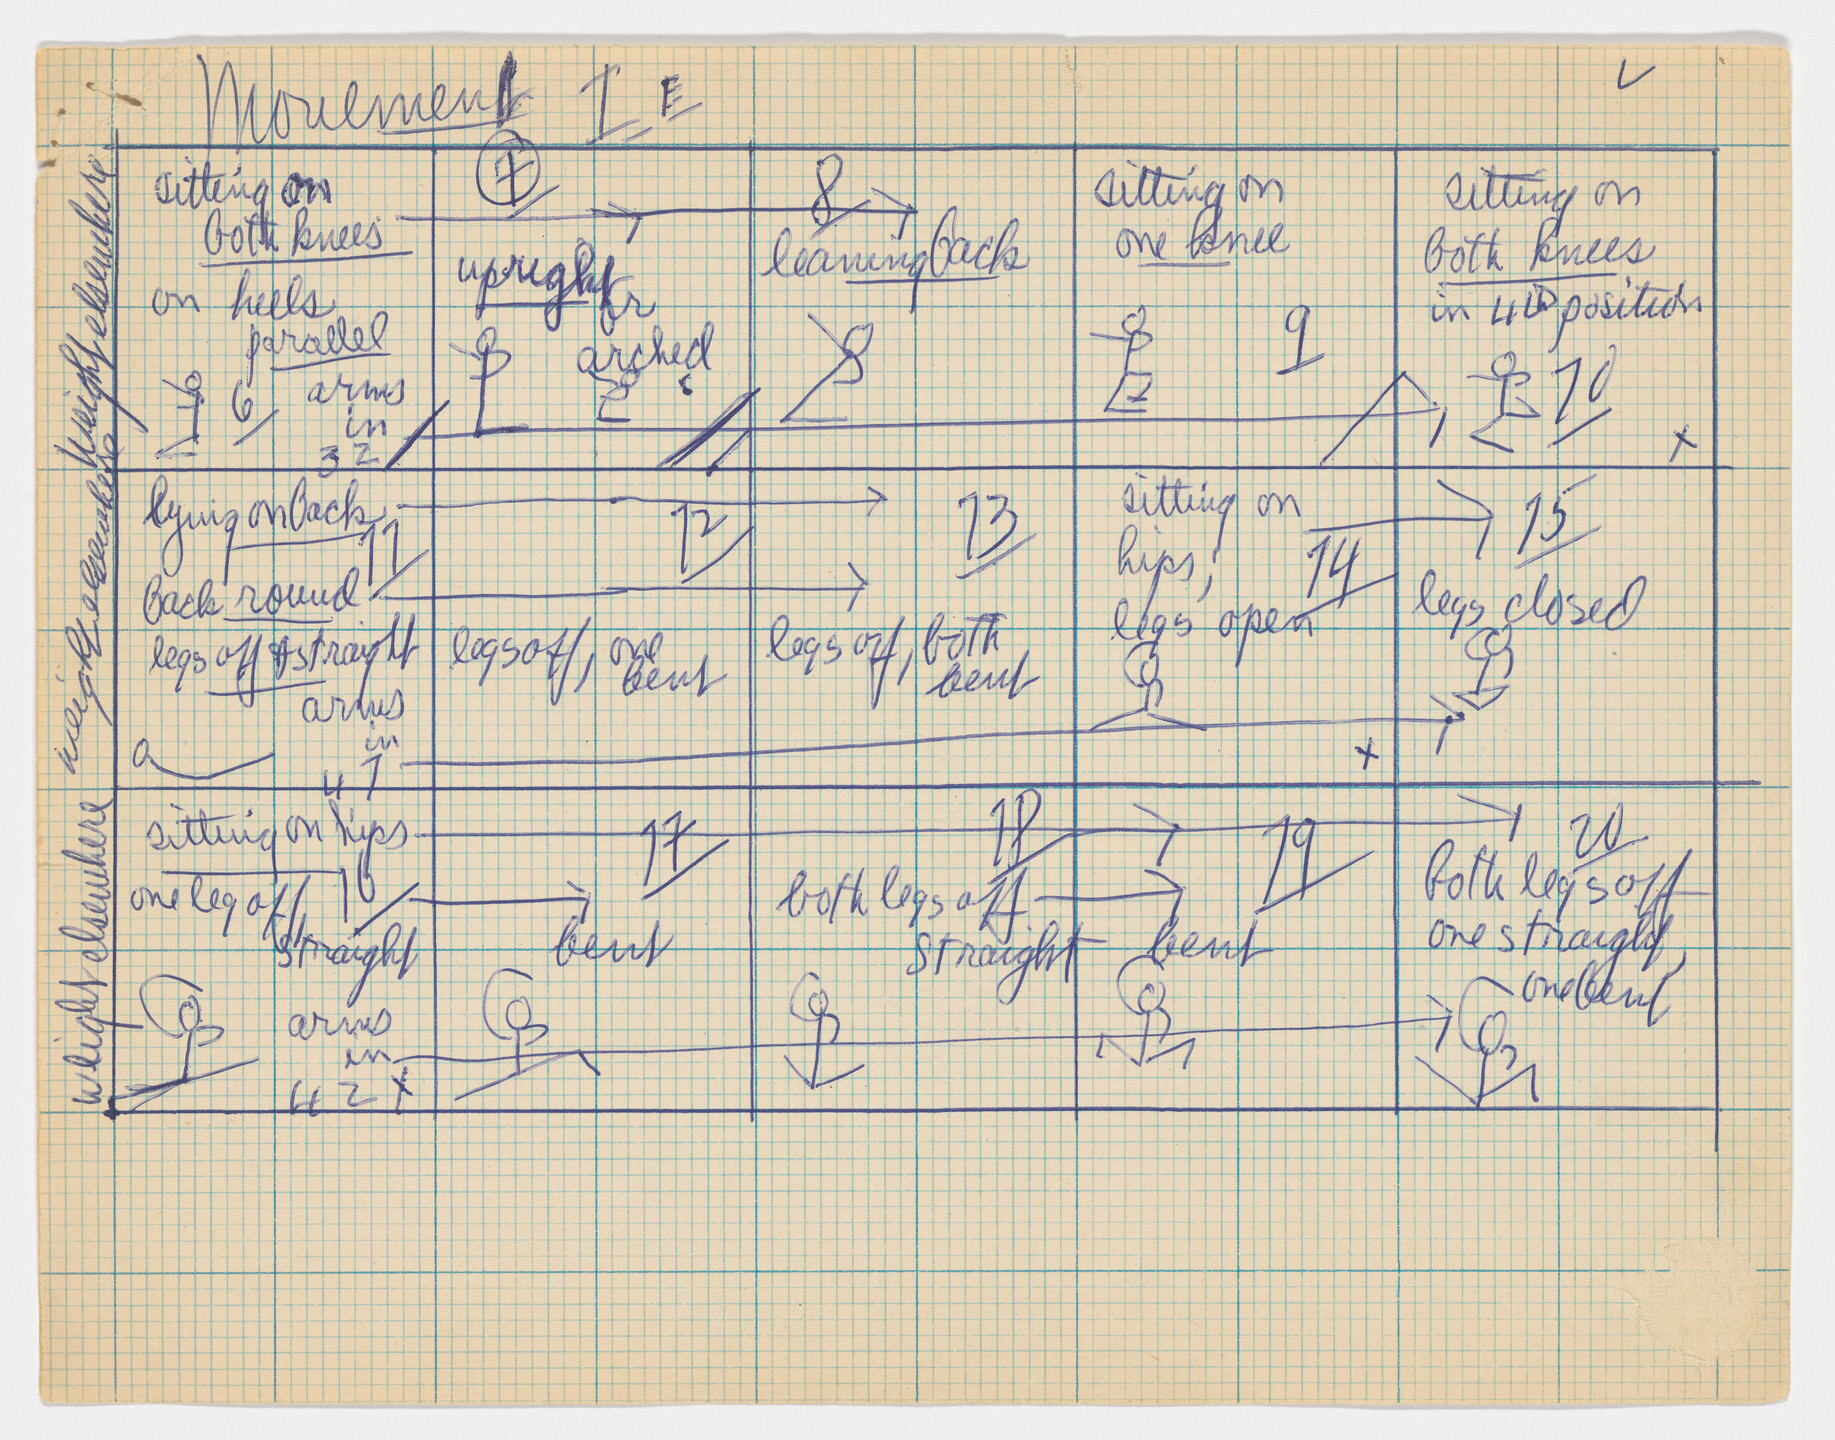 Movement I E
weight elsewhere
sitting on
both knees
on heels
parallel
6 arms
in
3 2
7
upright
or
arched
8
leaning back
sitting on
one knee
9
sitting on
both knees
in 4th position
10
x
weight elsewhere
lying on back
11
back round
legs off straight
arms
in
4 1
12
legs off, one
bent
13
legs off, both
bent
sitting on
hips;
14
legs open
x
15
legs closed
weight elsewhere
sitting on hips
one leg off, 16
straight
arms
in
4 2 x
17
bent
18
both legs off
straight
19
bent
20
both legs off
one straight,
one bent